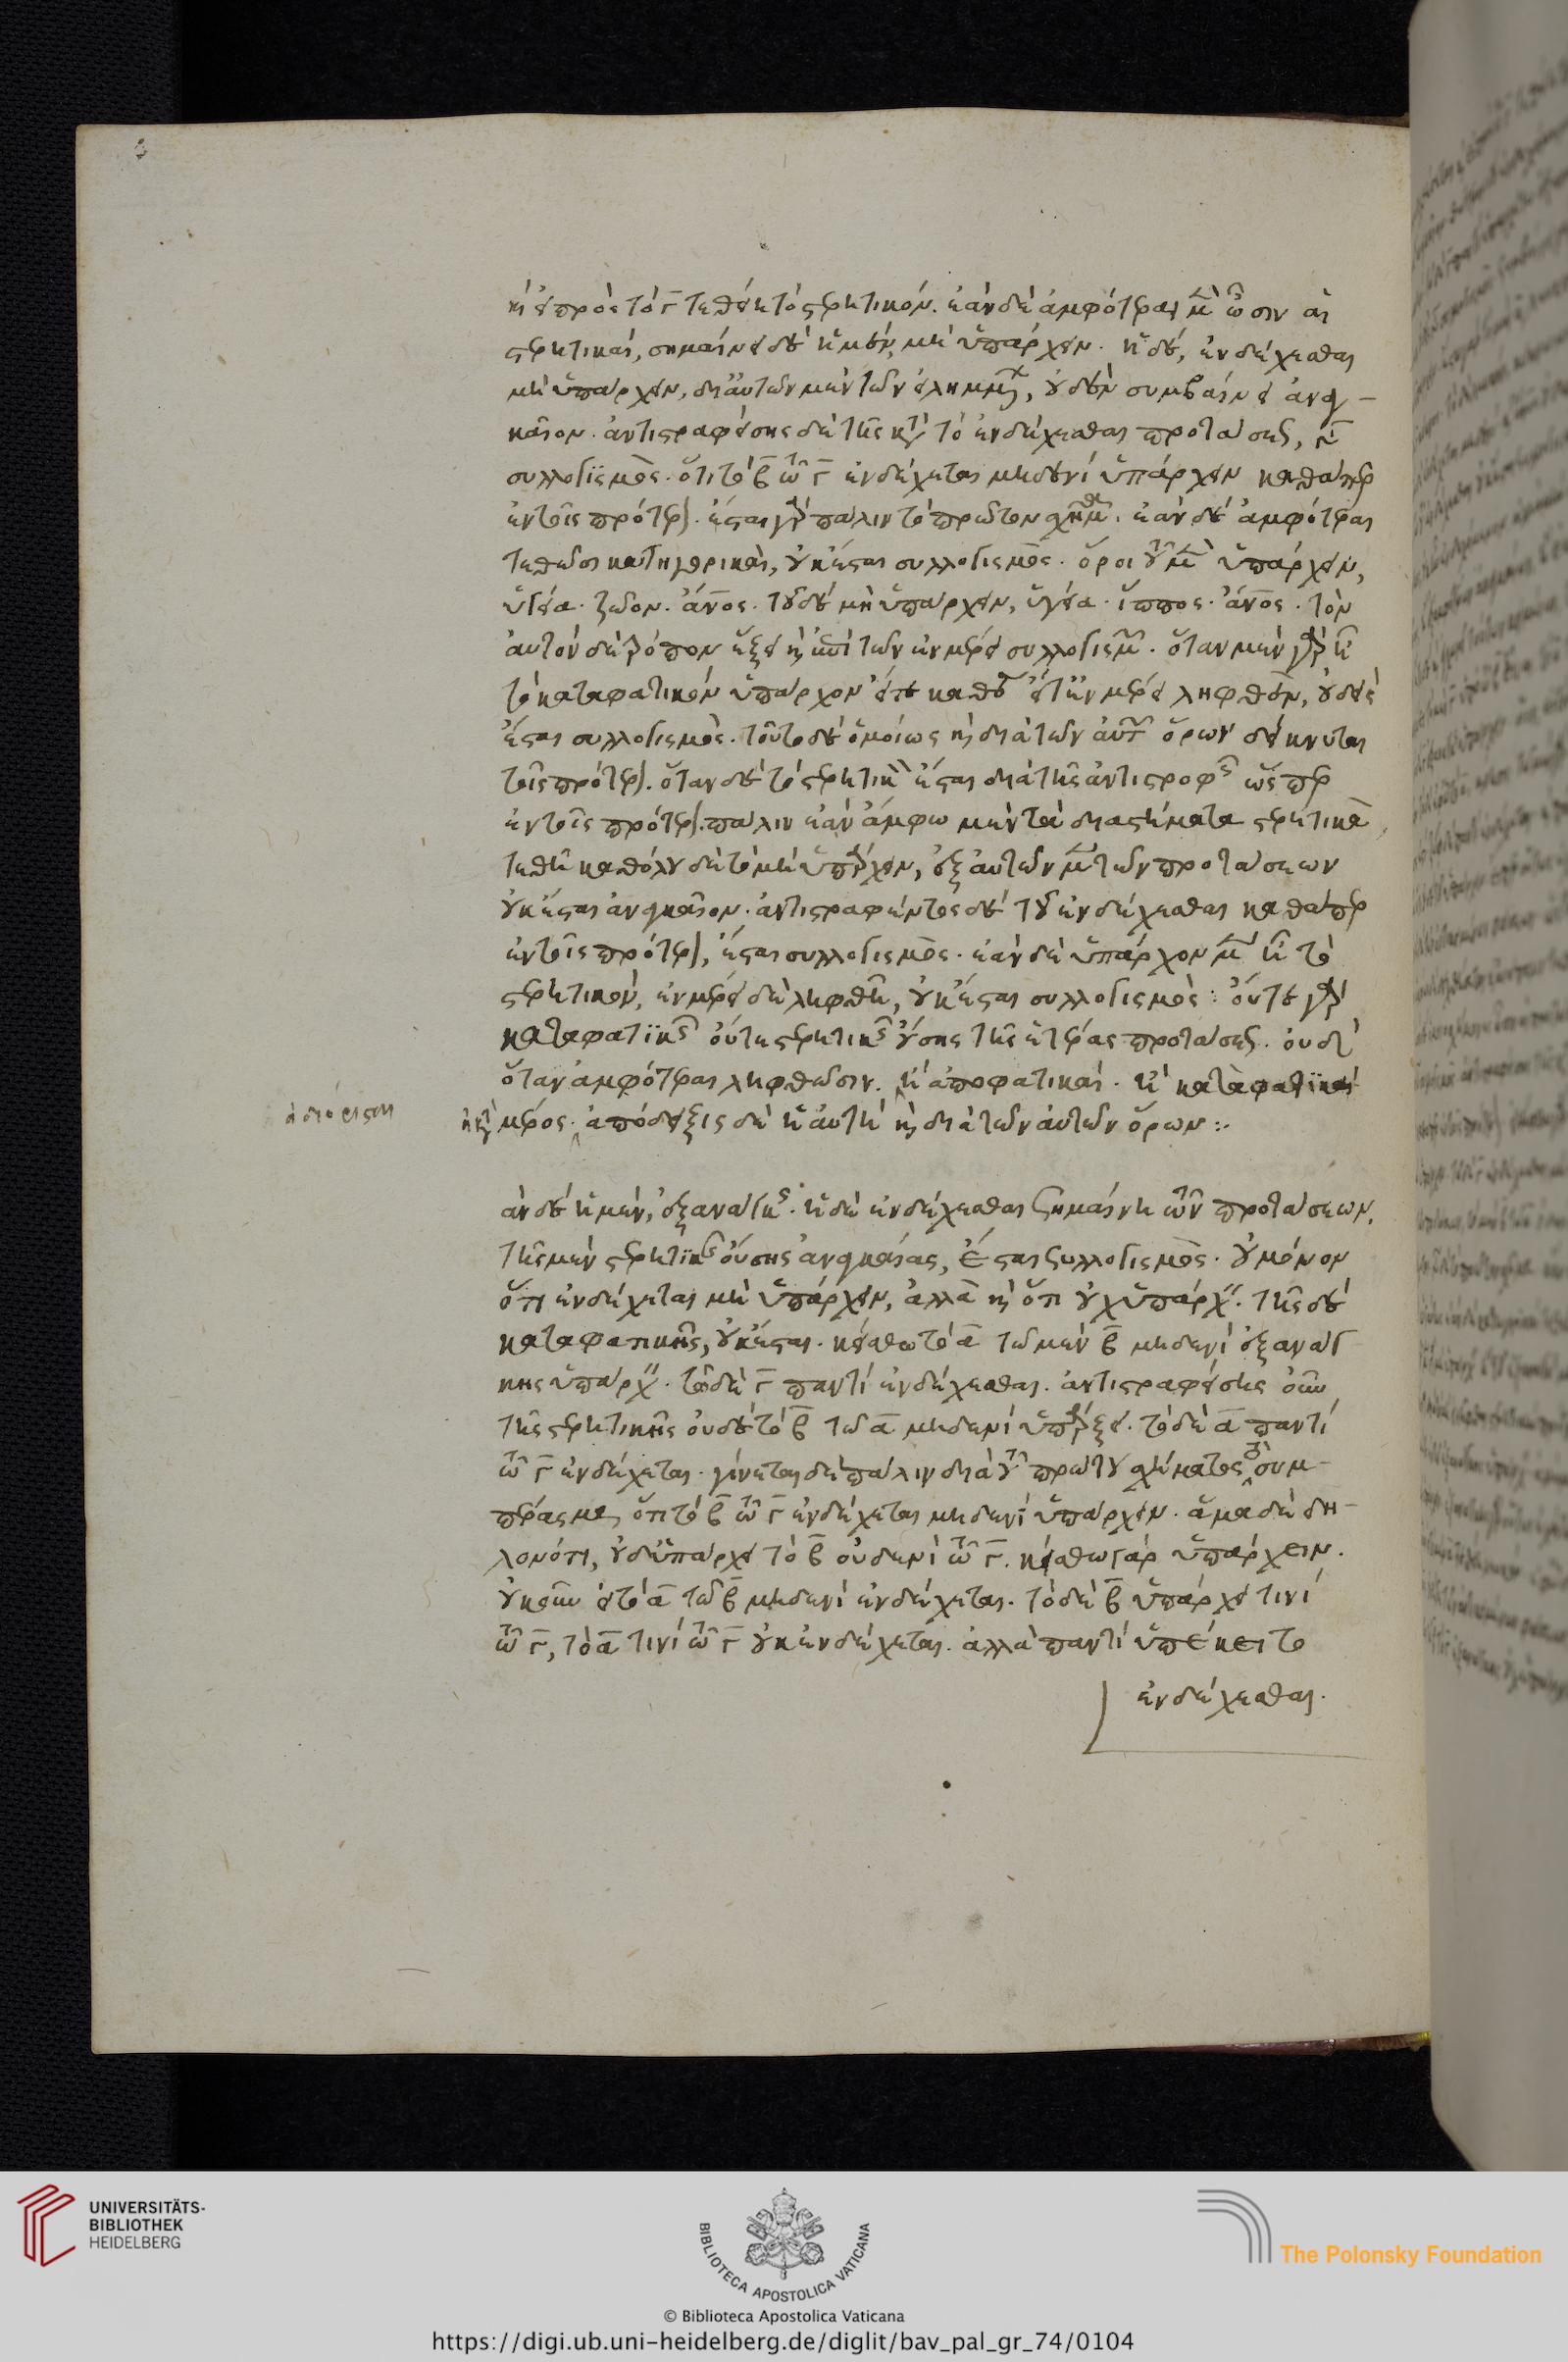 κἂν εἰ πρὸς τὸ Γ τεθείη τὸ στερητικόν. ἐὰν δὲ ἀμφότεραι μὲν ὦσιν αἱ
στερητικαί, σημαίνει δὲ ἡ μὲν, μὴ ὑπάρχειν. ἡ δέ, ἐνδέχεσθαι
μὴ ὑπάρχειν, δι' αὐτῶν μὲν τῶν εἰλημμένων, οὐδὲν συμβαίνει ἀναγ-
καῖον. ἀντιστραφείσης δὲ τῆς κατὰ τὸ ἐνδέχεσθαι προτάσεως,
συλλογισμὸς. ὅτι τὸ Β τῷ Γ ἐνδέχεται μηδενὶ ὑπάρχειν καθάπερ
ἐν τοῖς πρότερον. ἔσται γὰρ πάλιν τὸ πρῶτον σχῆμα. ἐὰν δὲ ἀμφότεραι
τεθῶσι κατηγορικαὶ, οὐκ ἔσται συλλογισμὸς. ὅροι τοῦ μὲν ὑπάρχειν,
ὑγεία. ζῶον. ἄνος. τοῦ δὲ μὴ ὑπάρχειν, ὑγεία. ἵππος. ἄνος. τὸν
αὐτὸν δὲ τρόπον ἕξει καὶ ἐπὶ τῶν ἐν μέρει συλλογισμῶν. ὅταν μὲν γὰρ ᾖ
τὸ καταφατικὸν ὑπάρχον εἴτε καθόλου εἴτ' ἐν μέρει ληφθὲν, οὐδεὶς
ἔσται συλλογισμὸς. τοῦτο δὲ ὁμοίως καὶ διὰ τῶν αὐτῶν ὅρων δείκνυται
τοῖς πρότερον. ὅταν δὲ τὸ στερητικὸν ἔσται διὰ τῆς ἀντιστροφῆς ὥσπερ
ἐν τοῖς πρότερον. πάλιν ἐὰν ἄμφω μὲν τὰ διαστήματα στερητικὰ
τεθῇ καθόλου δὲ τὸ μὴ ὑπάρχειν, ἐξ αὐτῶν μὲν τῶν προτάσεων
οὐκ ἔσται ἀναγκαῖον. ἀντιστραφέντος δὲ τοῦ ἐνδέχεσθαι καθάπερ
ἐν τοῖς πρότερον, ἔσται συλλογισμὸς. ἐὰν δὲ ὑπάρχον μὲν ᾖ τὸ
στερητικὸν, ἐν μέρει δὲ ληφθῇ, οὐκ ἔσται συλλογισμὸς: οὔτε γὰρ
καταφατικῆς οὔτε στερητικῆς οὔσης τῆς ἑτέρας προτάσεως. οὐδ'
ὅταν ἀμφότεραι ληφθῶσιν. ἢ ἀποφατικαὶ. ἢ καταφατικαὶ
ἀδιόριστοι ἢ κατὰ μέρος. ἀπόδειξις δὲ ἡ αὐτὴ καὶ διὰ τῶν αὐτῶν ὅρων:.
ἂν δὲ ἡ μὲν, ἐξ ἀνάγκης. ἡ δὲ ἐνδέχεσθαι σημαίνῃ τῶν προτάσεων,
τῆς μὲν στερητικῆς οὔσης ἀναγκαίας, ἔσται συλλογισμὸς. οὐ μόνον
ὅτι ἐνδέχεται μὴ ὑπάρχειν, ἀλλὰ καὶ ὅτι οὐχ ὑπάρχει. τῆς δὲ
καταφατικῆς, οὐκ ἔσται. κείσθω τὸ Α τῷ μὲν Β μηδενὶ ἐξ ἀνάγ
κης ὑπάρχειν. τῷ δὲ Γ παντὶ ἐνδέχεσθαι. ἀντιστραφείσης οὖν
τῆς στερητικῆς οὐδὲ τὸ Β τῷ Α μηδενὶ ὑπάρξει. τὸ δὲ Α παντὶ
τῷ Γ ἐνδέχεται. γίνεται δὴ πάλιν διὰ τοῦ πρώτου σχήματος τὸ συμ-
πέρασμα, ὅτι τὸ Β τῷ Γ ἐνδέχεται μηδενὶ ὑπάρχειν. ἅμα δὲ δη-
λονότι, οὐδ' ὑπάρχει τὸ Β οὐδενὶ τῷ Γ. κείσθω γὰρ ὑπάρχειν.
οὐκοῦν εἰ τὸ Α τῷ Β μηδενὶ ἐνδέχεται. τὸ δὲ Β ὑπάρχει τινὶ
τῷ Γ, τὸ Α τινὶ τῷ Γ οὐκ ἐνδέχεται. ἀλλὰ παντὶ ὑπέκειτο
ἐνδέχεσθαι.
UNIVERSITÄTS-
BIBLIOTHEK
HEIDELBERG
BIBLIOTECA APOSTOLICA VATICANA
The Polonsky Foundation
© Biblioteca Apostolica Vaticana
https://digi.ub.uni-heidelberg.de/diglit/bav_pal_gr_74/0104